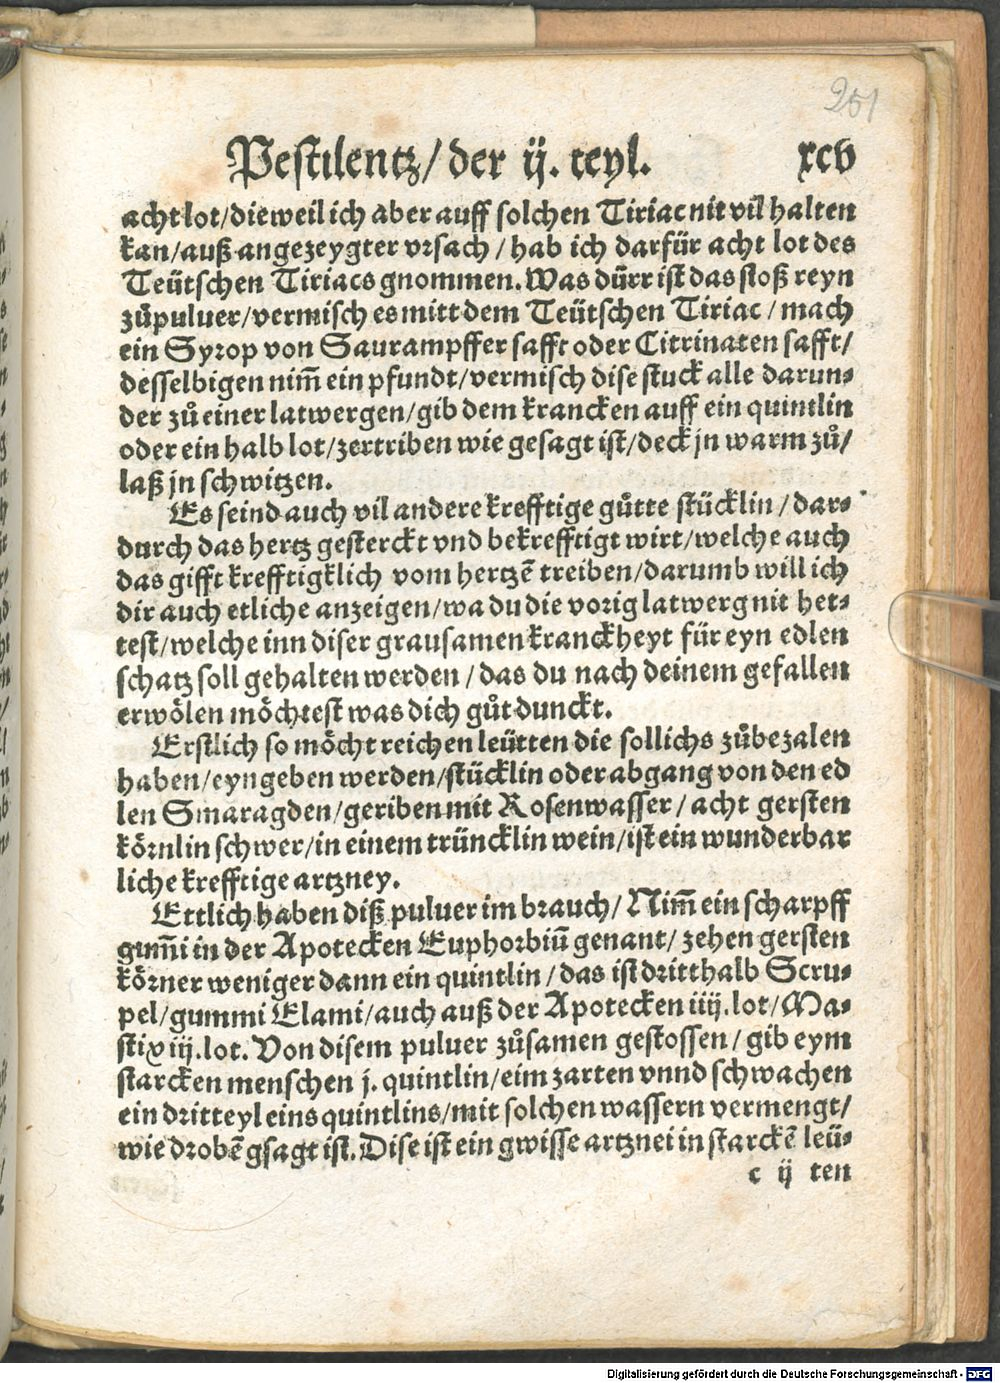 251
Pestilentz/ der ij. teyl. xcv
acht lot/ die weil ich aber auff solchen Tiriac nit vil halten
kan/ auß angezeygter vrsach/ hab ich darfür acht lot des
Teütschen Tiriacs gnommen. Was dürr ist das stoß reyn
zůpuluer/ vermisch es mitt dem Teütschen Tiriac/ mach
ein Syrop von Saurampffer safft oder Citrinaten safft/
desselbigen nim̃ ein pfundt/ vermisch dise stuck alle darun⸗
der zů einer latwergen/ gib dem krancken auff ein quintlin
oder ein halb lot/ zertriben wie gesagt ist/ deck jn warm zů/
laß jn schwitzen.
Es seind auch vil andere krefftige gůtte stücklin/ dar⸗
durch das hertz gesterckt vnd bekrefftigt wirt/ welche auch
das gifft krefftigklich vom hertzẽ treiben/ darumb will ich
dir auch etliche anzeigen/ wa du die vorig latwerg nit het⸗
test/ welche inn diser grausamen kranckheyt für eyn edlen
schatz soll gehalten werden/ das du nach deinem gefallen
erwölen möchtest was dich gůt dunckt.
Erstlich so möcht reichen leütten die sollichs zůbezalen
haben/ eyngeben werden/ stücklin oder abgang von den ed
len Smaragden/ geriben mit Rosenwasser/ acht gersten
körnlin schwer/ in einem trüncklin wein/ ist ein wunderbar
liche krefftige artzney.
Ettlich haben diß puluer im brauch/ Nim̃ ein scharpff
gum̃i in der Apotecken Euphorbiũ genant/ zehen gersten
körner weniger dann ein quintlin/ das ist dritthalb Scru⸗
pel/ gummi Elami/ auch auß der Apotecken iiij. lot/ Ma⸗
stix iij. lot. Von disem puluer zůsamen gestossen/ gib eym
starcken menschen j. quintlin/ eim zarten vnnd schwachen
ein dritteyl eins quintlins/ mit solchen wassern vermengt/
wie drobẽ gsagt ist. Dise ist ein gwisse artznei in starckẽ leü⸗
c ij ten
Digitalisierung gefördert durch die Deutsche Forschungsgemeinschaft - DFG